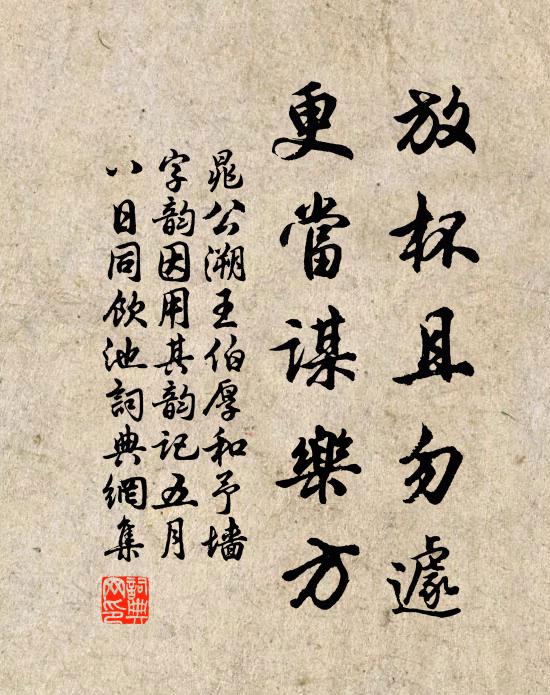 放杯且勿遽
更當謀樂方
晁公溯王伯厚和予墻
字韵因用其韵记五月
八日同飲池詞典網集
詞典
网印